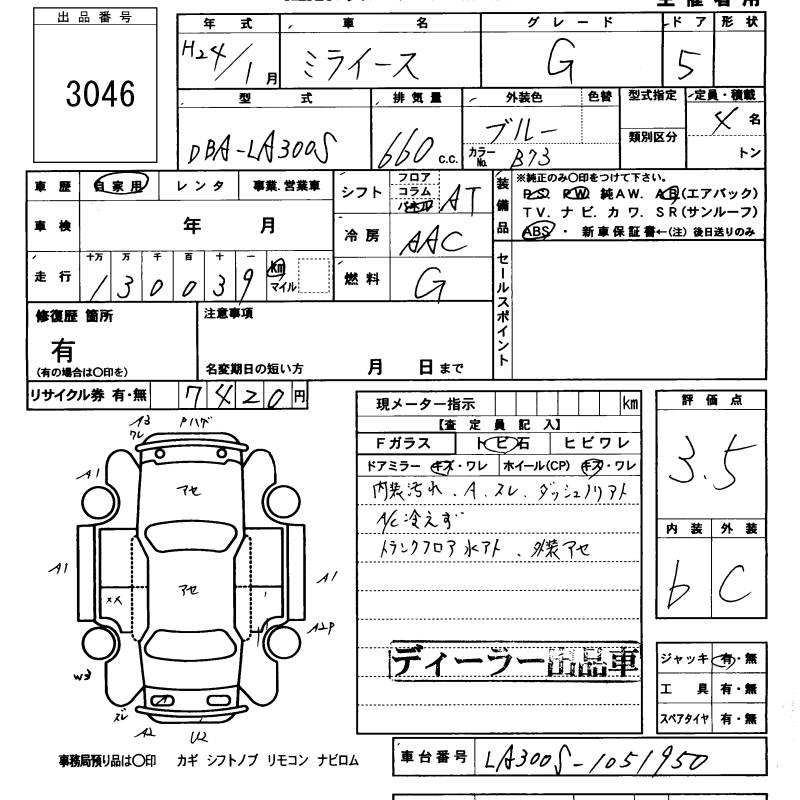 出品番号
3046
年式 車名 グレード ドア 形状
H24/1月 ミライース G 5
型式 排気量 外装色 色替 型式指定 定員・積載
DBA-LA300S 660 c.c. ブルー カラーNo. B73 類別区分 4名
トン
車歴 自家用 レンタ 事業.営業車
車検 年 月
走行 十万 万 千 百 十 一 km マイル
1 3 0 0 3 9
シフト フロア コラム AT
冷房 AAC
燃料 G
装備品
※純正のみ〇印をつけて下さい。
P.S. P.W. 純AW. A.B(エアバック)
T V. ナビ. カワ. SR(サンルーフ)
ABS ・ 新車保証書←(注)後日送りのみ
セールスポイント
修復歴 箇所
有
(有の場合は〇印を)
注意事項
名変期日の短い方 月 日まで
リサイクル券 有・無 7420円
現メーター指示 km
【査定員記入】
Fガラス トビ石 ヒビワレ
ドアミラー キズ・ワレ ホイール(CP) キズ・ワレ
内装汚れ . A . スレ . ダッシュノリアト
A/C冷えず
トランクフロア水アト 、外装アセ
ディーラー出品車
評価点
3.5
内装 外装
b C
ジャッキ 有・無
工具 有・無
スペアタイヤ 有・無
A3 ワレ Pハゲ
A1
アセ
A1
アセ
A1
A2P
W3
ズレ
A2
U2
事務局預り品は〇印 カギ シフトノブ リモコン ナビロム
車台番号 LA300S-1051950